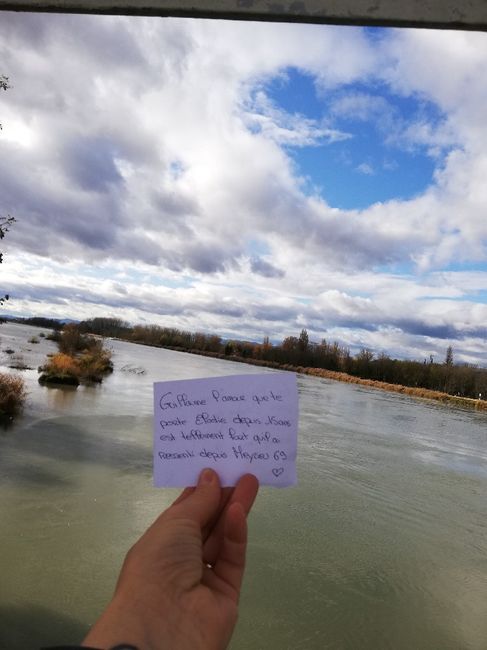 Guillaume l'amour que te
porte Elodie depuis 15 ans
est tellement fort qu'il a
ressenti depuis Meyzieu 69
♡